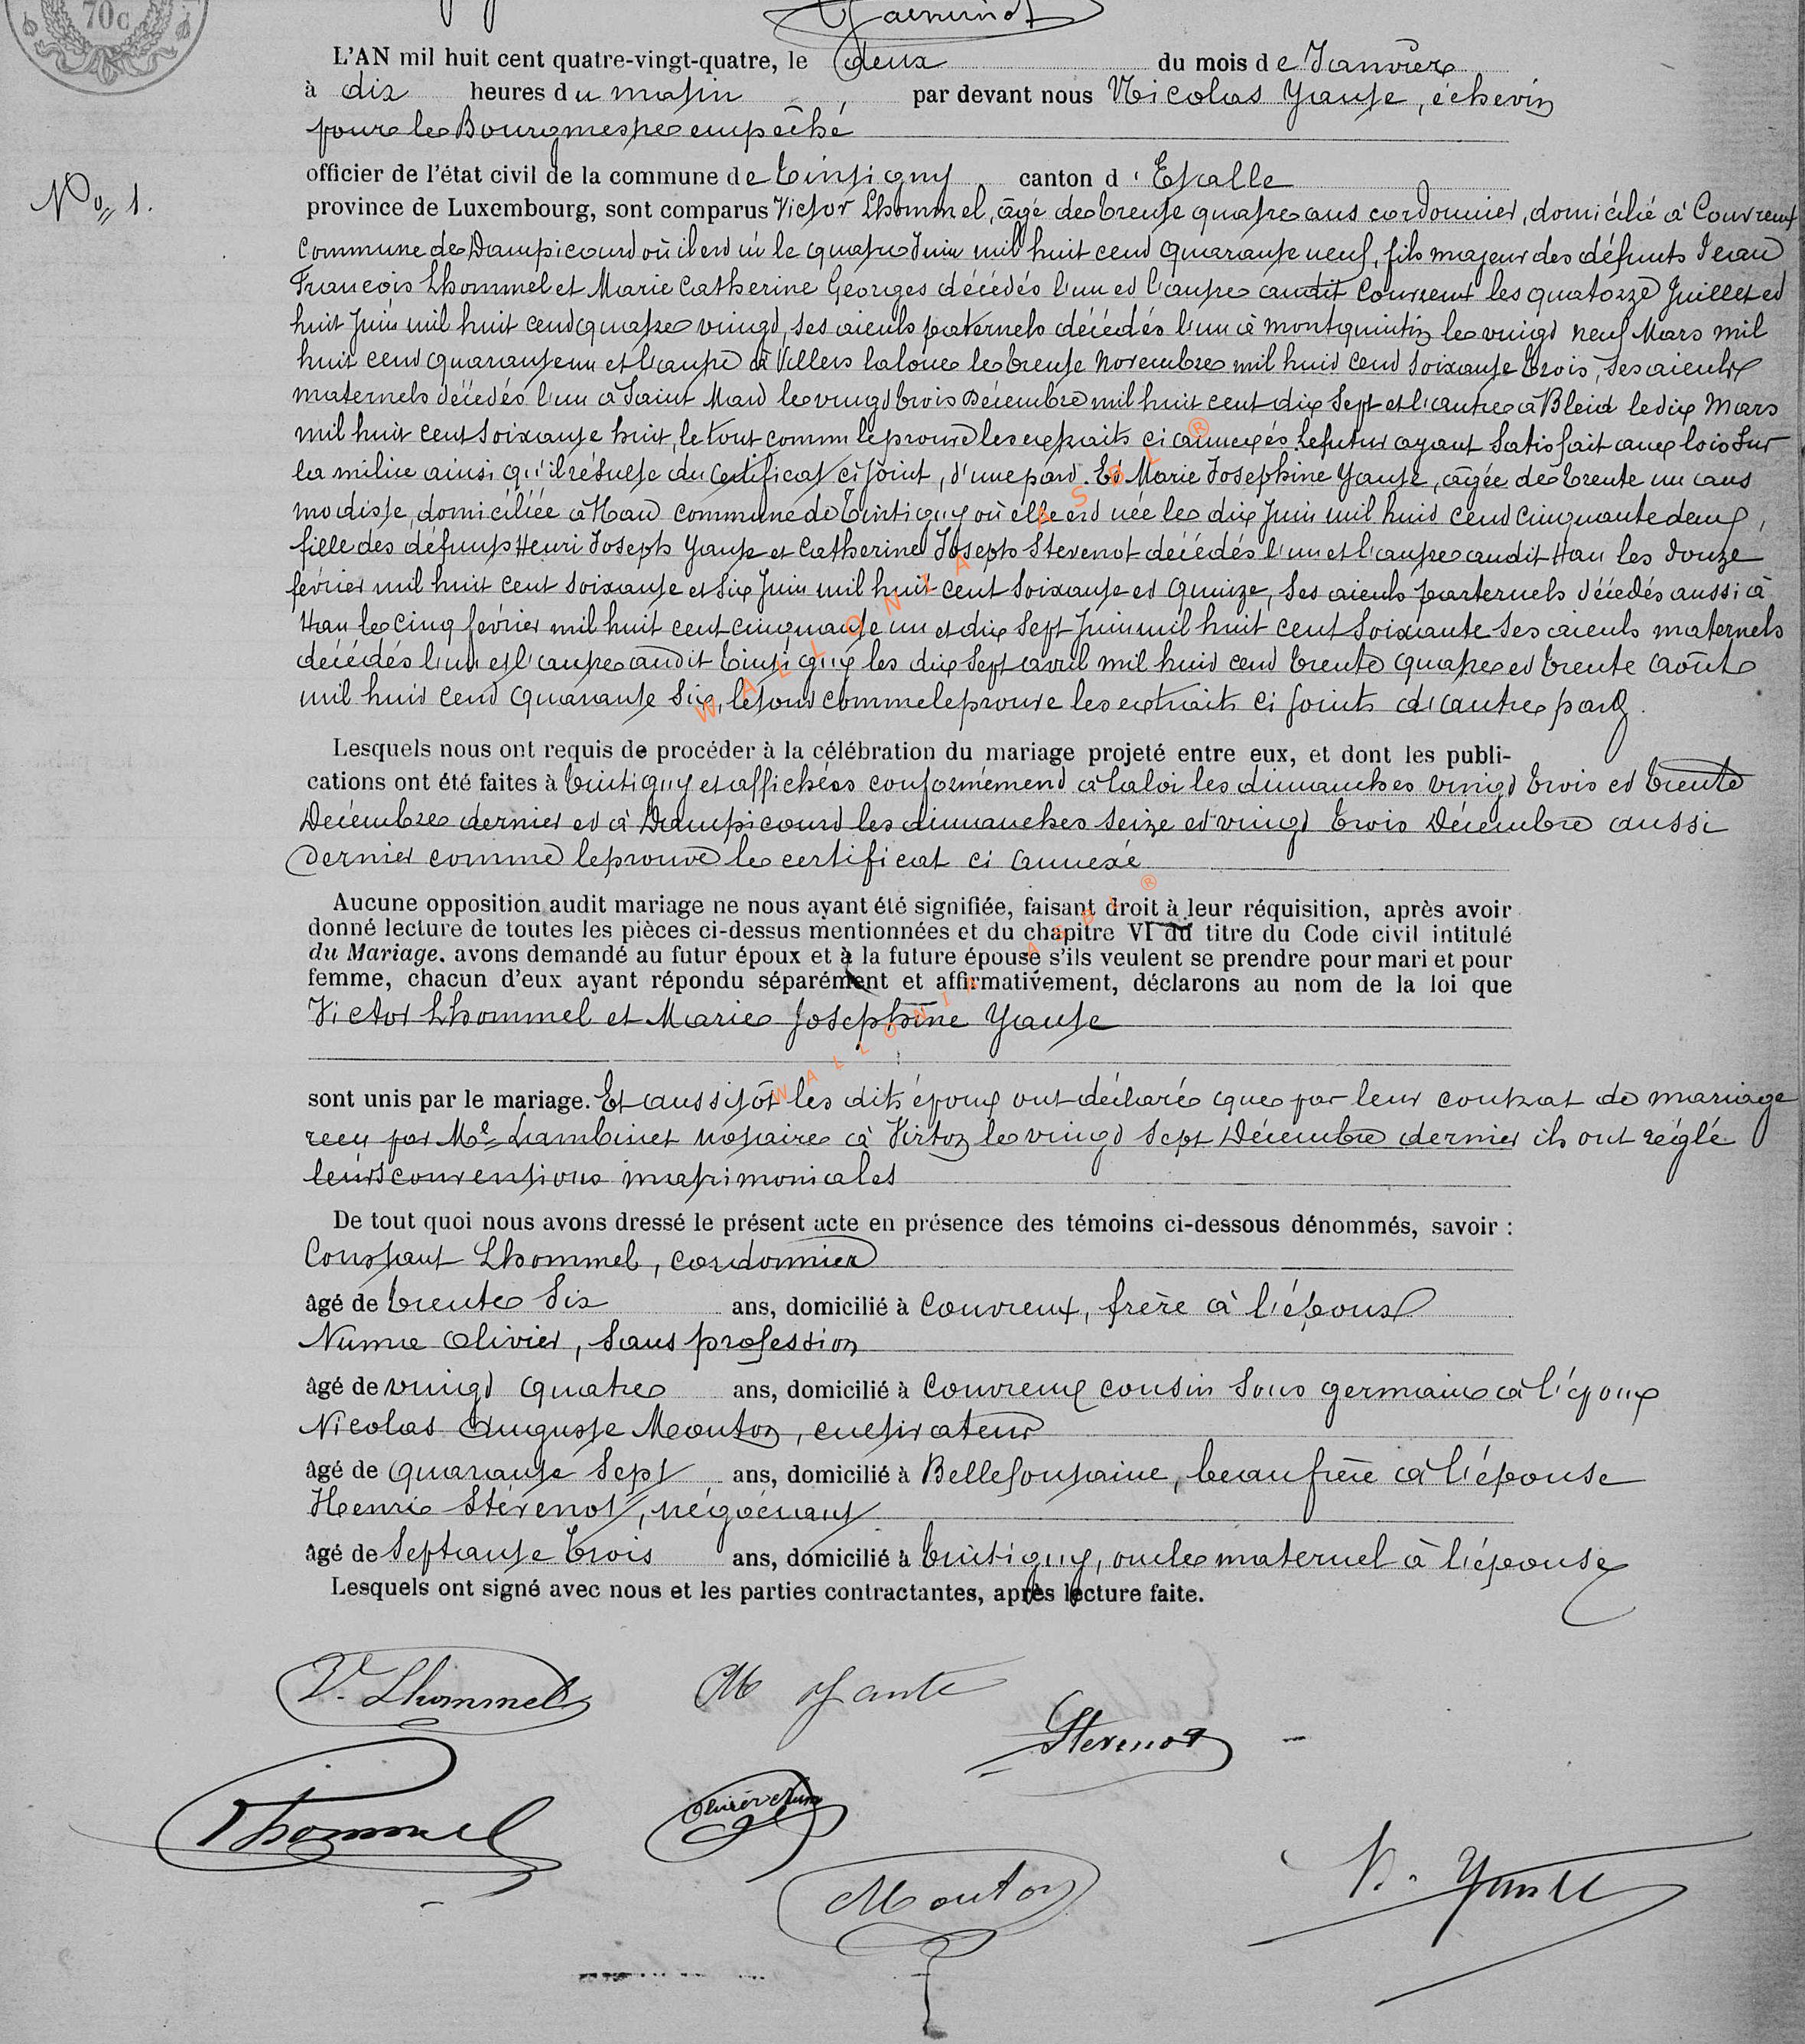 70c
L'AN mil huit cent quatre-vingt-quatre, le deux du mois de Janvier
à dix heures du matin par devant nous Nicolas Yante, échevin
pour le Bourgmestre empêché
officier de l'état civil de la commune de Tintigny canton d'Etalle
No 1.
province de Luxembourg, sont comparus Victor Lhommel, âgé de trente quatre ans cordonnier, domicilié à Couvreux
Commune de Dampicourt où il est né le quatre Juin mil huit cent quarante neuf, fils majeur des défunts Jean
François Lhommel et Marie Catherine Georges décédés l'un et l'autre audit Couvreux les quatorze Juillet et
huit Juin mil huit cent quatre vingt, ses aieuls paternels décédés l'un à montquintin le vingt neuf Mars mil
huit cent quarante un et l'autre à Villers laloue le trente Novembre mil huit cent soixante trois, ses aieuls
maternels décédés l'un à Saint Mard le vingt trois Décembre mil huit cent dix Sept et l'autre à Bleid le dix Mars
mil huit cent soixante huit, le tout comm le prouve les extraits ci annexés. Le futur ayant satisfait aux lois sur
la milice ainsi qu'il résulte du certificat ci joint, d'une part. Et Marie Josephine Yante, âgée de trente un ans
modiste, domiciliée à Han commune de Tintigny où elle est née le dix Juin mil huit cent cinquante deux,
fille des défunts Henri Joseph Yante et Catherine Joseph Stevenot décédés l'un et l'autre audit Han les douze
février mil huit cent soixante et six Juin mil huit cent soixante et quinze, ses aieuls paternels décédés aussi à
Han le cinq février mil huit cent cinquante un et dix sept Juin mil huit cent soixante ses aieuls maternels
décédés l'un et l'autre audit Tintigny les dix sept avril mil huit cent trente quatre et trente août
mil huit cent quarante six, le tout comme le prouve les extraits ci joints d'autre part.
Lesquels nous ont requis de procéder à la célébration du mariage projeté entre eux, et dont les publi-
cations ont été faites à Tintigny et affichées conformément à la loi les dimanches vingt trois et trente
Décembre dernier et à Dampicourt les dimanches seize et vingt trois Décembre aussi
dernier comme le prouve le certificat ci annexé
Aucune opposition audit mariage ne nous ayant été signifiée, faisant droit à leur réquisition, après avoir
donné lecture de toutes les pièces ci-dessus mentionnées et du chapitre VI du titre du Code civil intitulé
du Mariage. avons demandé au futur époux et à la future épouse s'ils veulent se prendre pour mari et pour
femme, chacun d'eux ayant répondu séparément et affirmativement, déclarons au nom de la loi que
Victor Lhommel et Marie Josephine Yante
sont unis par le mariage. Et aussitôt les dits époux ont déclaré que par leur contrat de mariage
reçu par Me Lambinet notaire à Virton le vingt sept Décembre dernier ils ont réglé
leurs conventions matrimoniales
De tout quoi nous avons dressé le présent acte en présence des témoins ci-dessous dénommés, savoir :
Constant Lhommel, cordonnier
âgé de trente six ans, domicilié à Couvreux, frère à l'époux
Numa Olivier, sans profession
âgé de vingt quatre ans, domicilié à Couvreux cousin sous germain à l'époux
Nicolas Auguste Mouton, cultivateur
âgé de quarante sept ans, domicilié à Bellefontaine, beau frère à l'épouse
Henri Stévenot, négociant
âgé de septante trois ans, domicilié à Tintigny, oncle maternel à l'épouse
Lesquels ont signé avec nous et les parties contractantes, après lecture faite.
V. Lhommel M Yante
Stevenot
Lhommel Olivier Numa
Mouton N. Yante
WALLONIA ASBL ®
WALLONIA ASBL ®